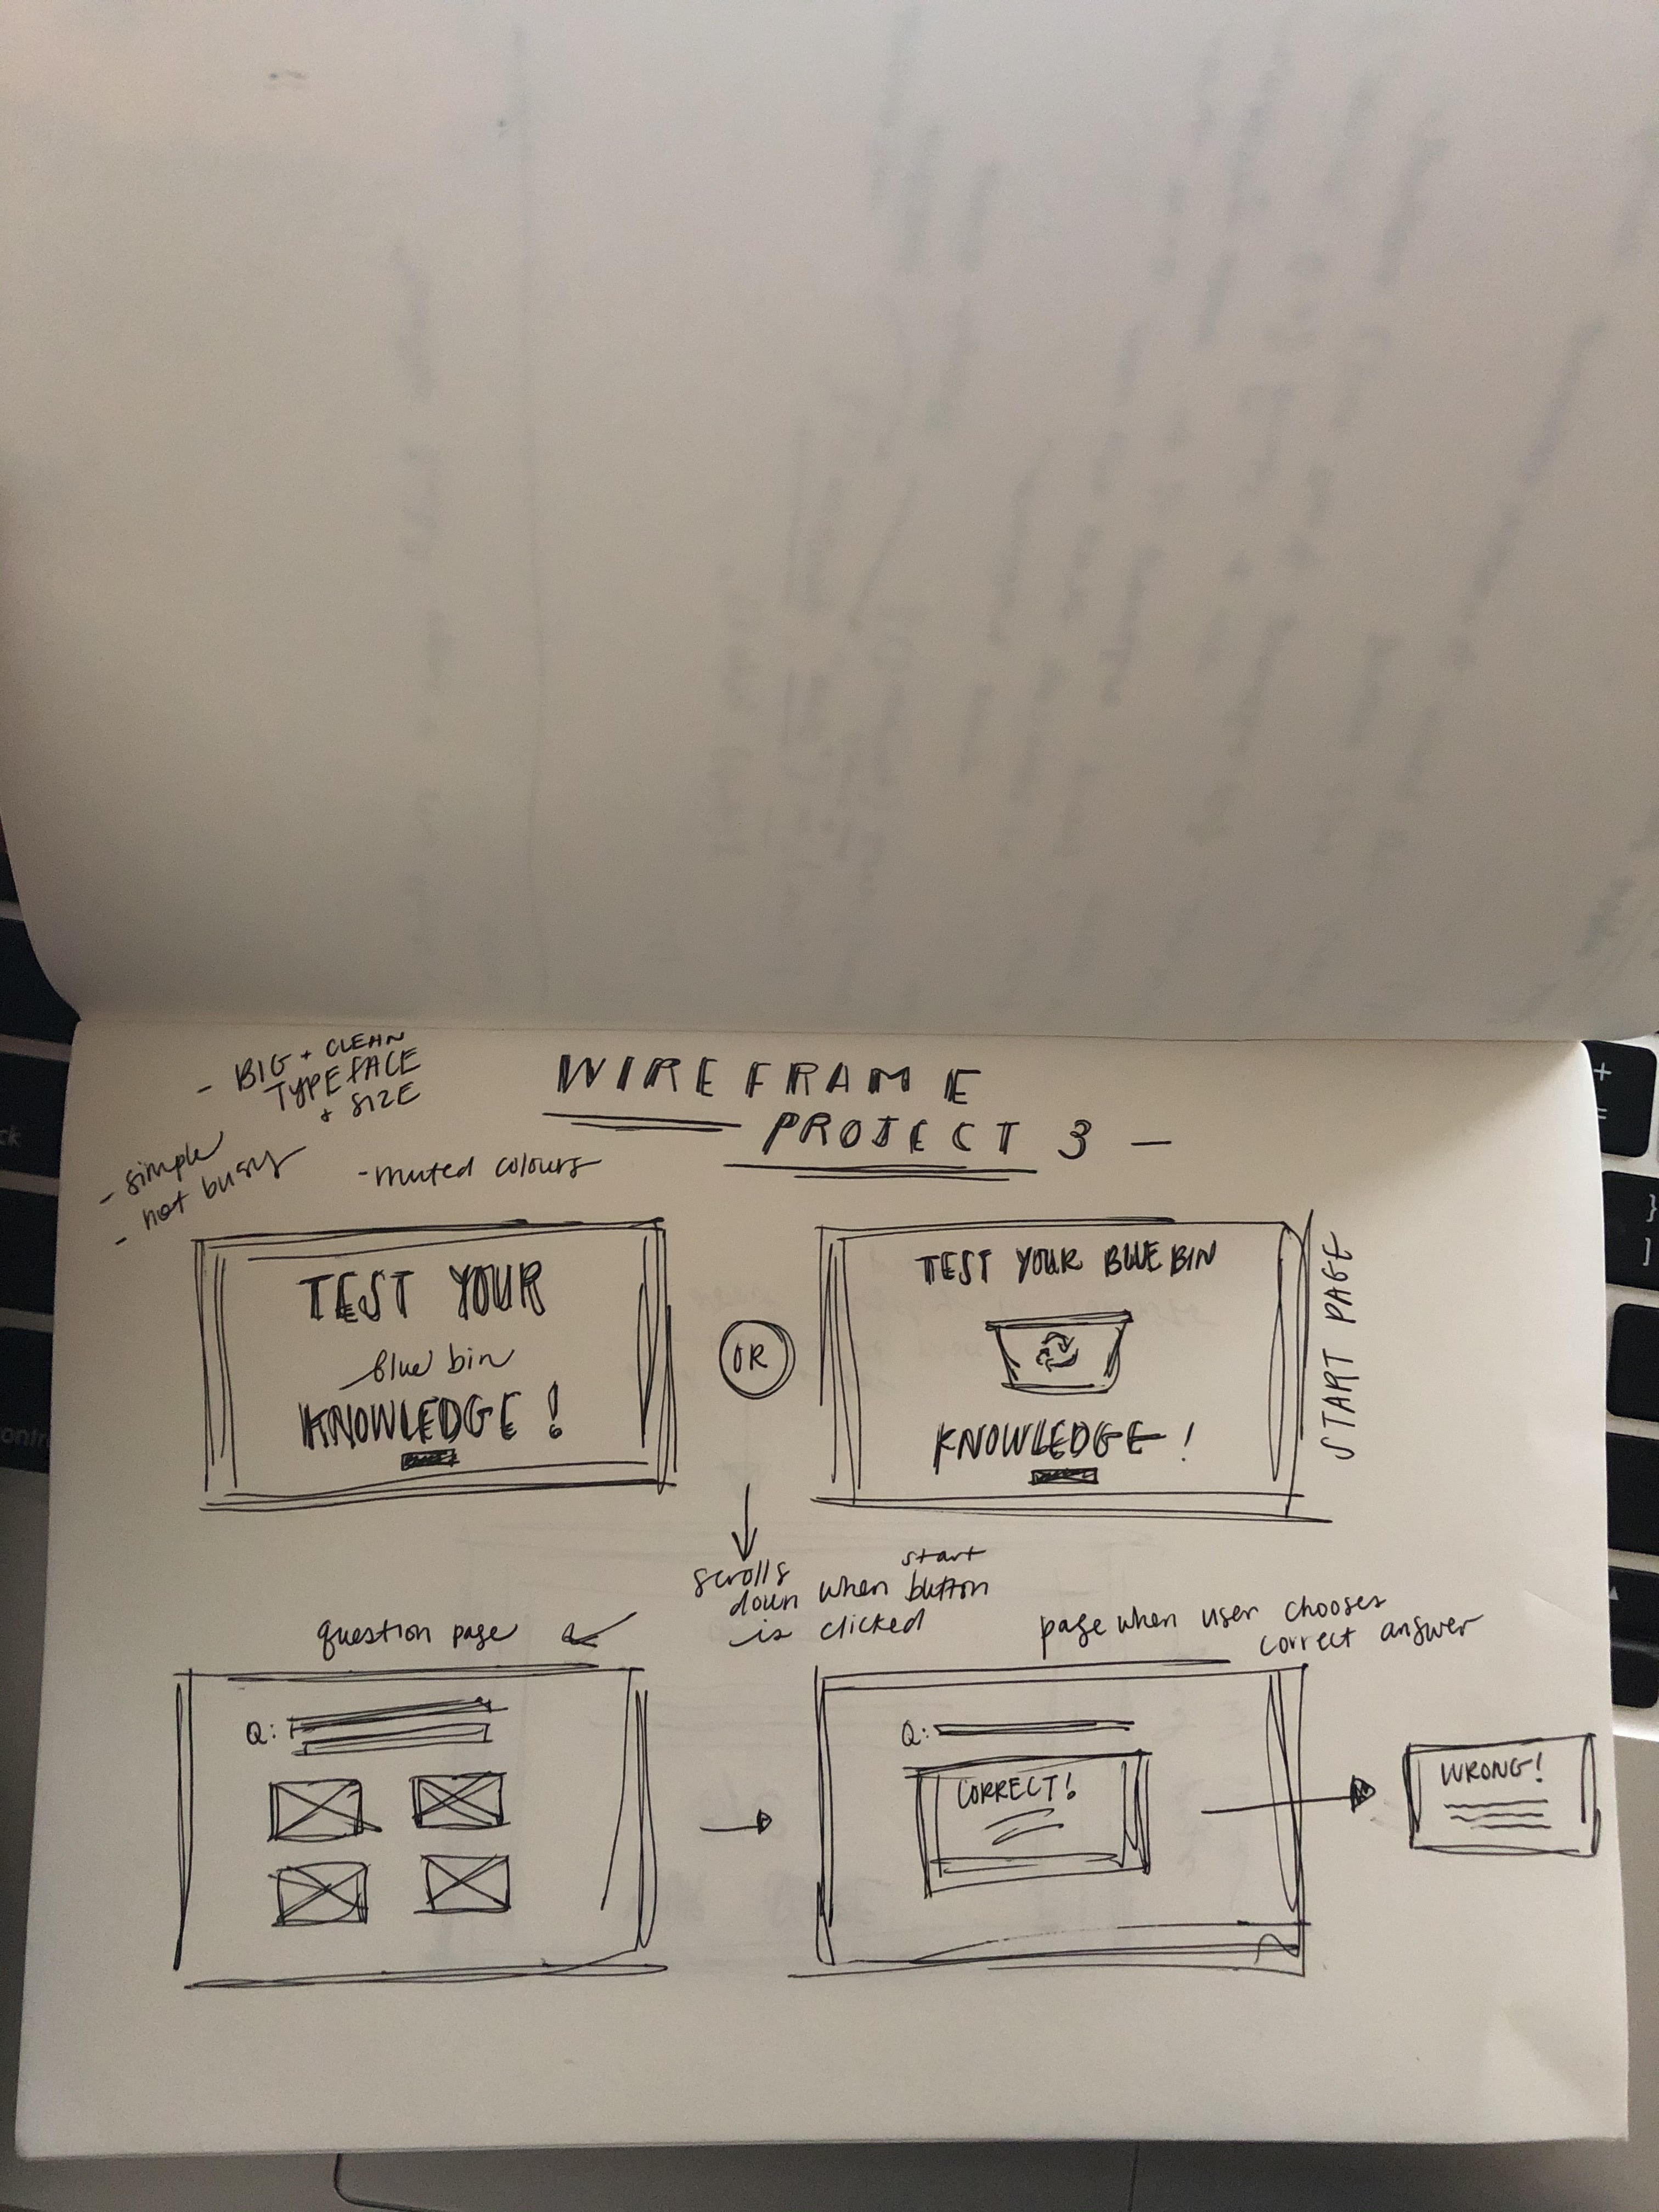 - BIG + CLEAN
TYPEFACE
+ SIZE
WIREFRAME
PROJECT 3 —
- simple
- not busy
- muted colours
TEST YOUR
blue bin
KNOWLEDGE!
OR
TEST YOUR BLUE BIN
KNOWLEDGE!
START PAGE
scrolls
down when start button
is clicked
question page
page when user chooses
correct answer
Q:
Q:
CORRECT!
WRONG!
+
=
}
]